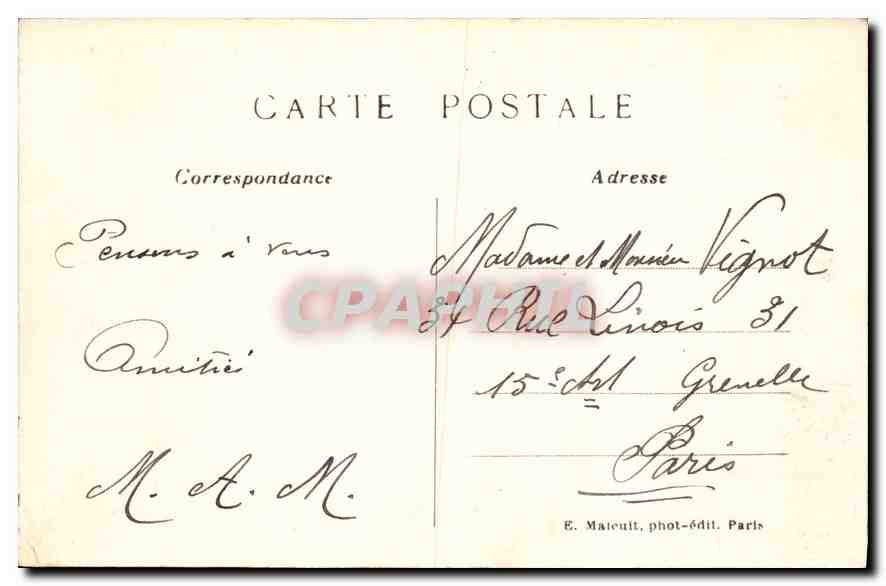 CARTE POSTALE
Correspondance
Adresse
Pensons à vous
Amitiés
M. A. M.
Madame et Monsieur Vignot
31 Rue Linois 31
15e Art Grenelle
Paris
E. Malcuit, phot-édit. Paris
CPAPHIL